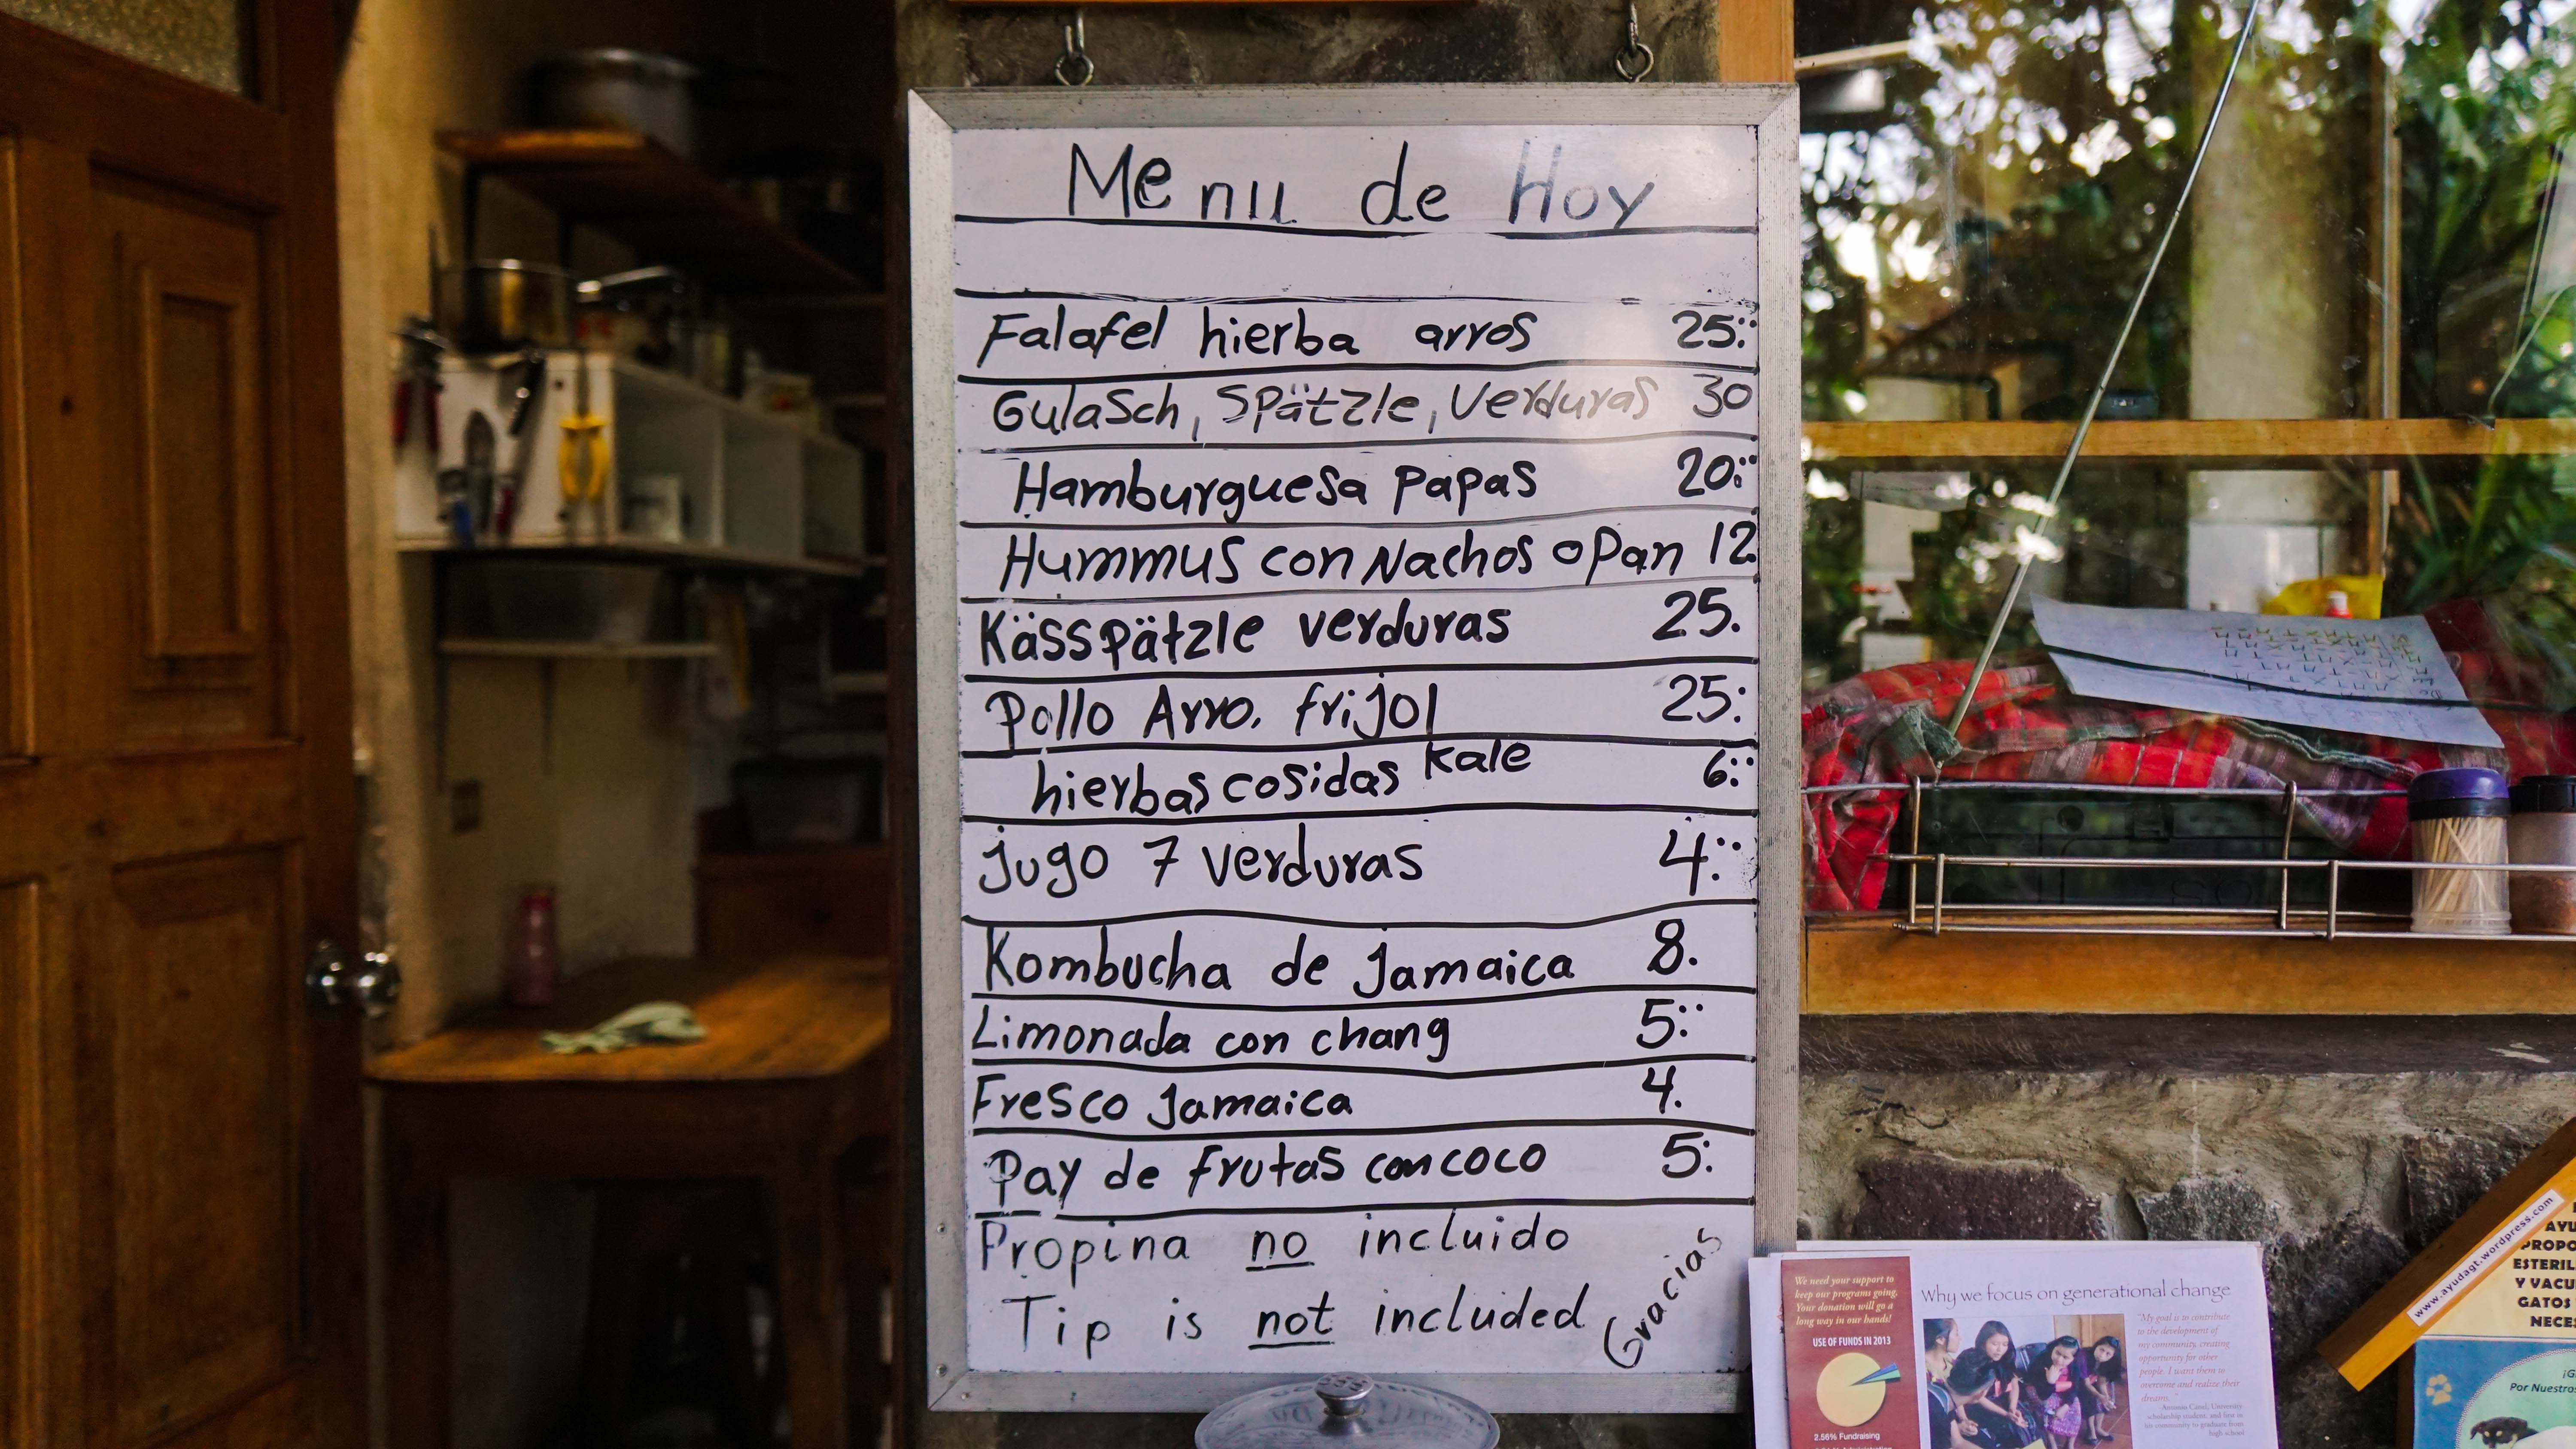 Menu de Hoy
Falafel hierba arros 25
Gulasch, Spätzle, Verduras 30
Hamburguesa Papas 20
Hummus con Nachos o Pan 12.
Kässpätzle verduras 25.
Pollo Arro. frijol 25
hierbas cosidas Kale 6
jugo 7 verduras 4
Kombucha de Jamaica 8.
Limonada con chang 5
Fresco Jamaica 4.
Pay de frutas con coco 5
Propina no incluido
Tip is not included
Gracias
We need your support to
keep our programs going.
Your donation will go a
long way in our hands!
USE OF FUNDS IN 2013
2.56% Fundraising
Why we focus on generational change
"My goal is to contribute
to the development of
my community, creating
opportunity for other
people. I want them to
overcome and realize their
dreams."
www.ayudagt.wordpress.com
Y VACU
GATOS
NECES
Por Nuestros